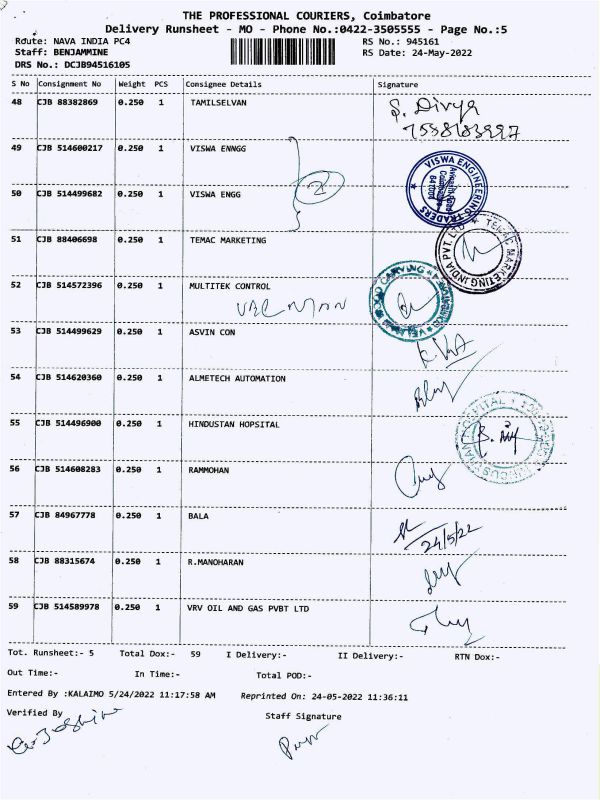 THE PROFESSIONAL COURIERS, Coimbatore
Delivery Runsheet - MO - Phone No.:0422-3505555 - Page No.:5
Route: NAVA INDIA PC4 RS No.: 945161
Staff: BENJAMMINE RS Date: 24-May-2022
DRS No.: DCJB94516105
S No Consignment No Weight PCS Consignee Details Signature
48 CJB 88382869 0.250 1 TAMILSELVAN S. Divya
49 CJB 514600217 0.250 1 VISWA ENNGG
VISWA ENGINEERING TRADERS
50 CJB 514499682 0.250 1 VISWA ENGG
51 CJB 88406698 0.250 1 TEMAC MARKETING
TEMAC MARKETING INDIA PVT. LTD
52 CJB 514572396 0.250 1 MULTITEK CONTROL
53 CJB 514499629 0.250 1 ASVIN CON
54 CJB 514620360 0.250 1 ALMETECH AUTOMATION
55 CJB 514496900 0.250 1 HINDUSTAN HOPSITAL
56 CJB 514608283 0.250 1 RAMMOHAN
57 CJB 84967778 0.250 1 BALA
24/5/22
58 CJB 88315674 0.250 1 R.MANOHARAN
59 CJB 514589978 0.250 1 VRV OIL AND GAS PVBT LTD
Tot. Runsheet:- 5 Total Dox:- 59 I Delivery:- II Delivery:- RTN Dox:-
Out Time:- In Time:- Total POD:-
Entered By :KALAIMO 5/24/2022 11:17:58 AM Reprinted On: 24-05-2022 11:36:11
Verified By Staff Signature